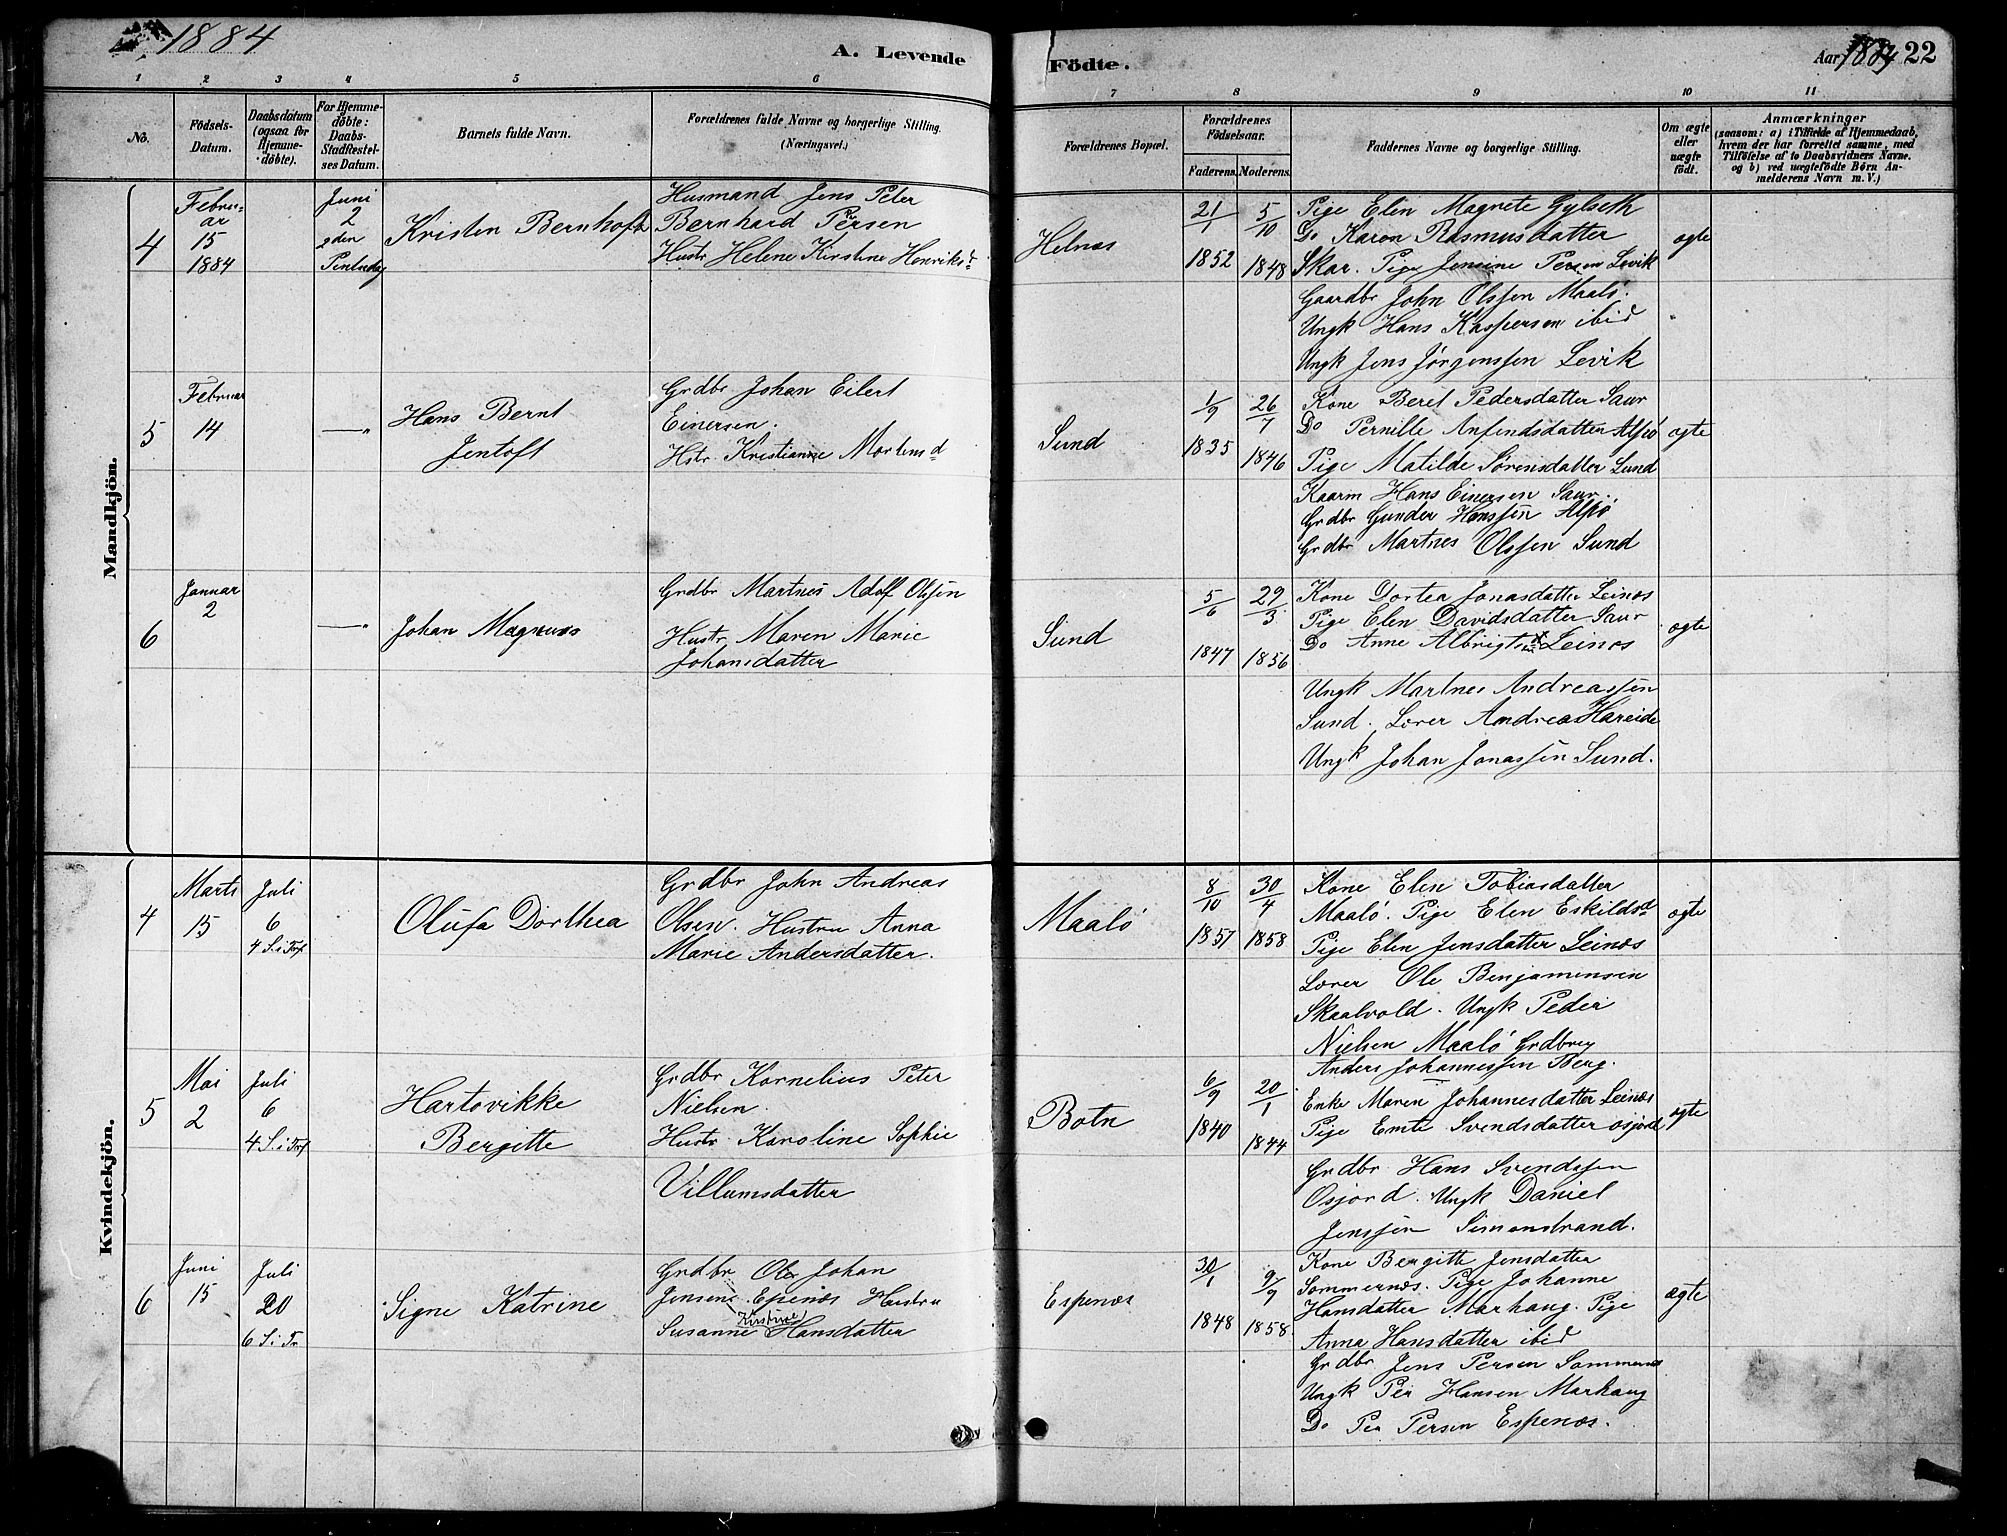 1884
A. Levende
Födte.
Aar 1884 22
1 2 3 4 5 6 7 8 9 10 11
No.
Födsels-
Datum.
Daabsdatum
(ogsaa for
Hjemme-
döbte).
For Hjemme-
döbte:
Daabs-
Stadfestel-
ses Datum.
Barnets fulde Navn.
Forældrenes fulde Navne og borgerlige Stilling.
(Næringsvei.)
Forældrenes Bopæl.
Forældrenes
Födselsaar.
Faderens. Moderens.
Faddernes Navne og borgerlige Stilling.
Om ægte
eller
uægte
födt.
Anmærkninger
(saasom: a) i Tilfælde af Hjemmedaab,
hvem der har forrettet samme, med
Tilföielse af to Daabsvidners Navne.
og b) ved uægtefödte Börn An-
melderens Navn m. V.)
Mandkjön.
4
Febru-
ar
15
1884
Juni
2
2den
Pintsdag
Kristen Bernhoft
Husmand Jens Peter
Bernhard Persen
Hustr Helene Kirstine Henriksd
Helnæs
21/1
1852
5/10
1848
Pige Elen Magrete Gylseth
Do Karon Rasmusdatter
Skar. Pige Jensine Persen Levik
Gaardbr John Olssen Maalö.
Ungk Hans Kaspersen ibid
Ungk Jens Jörgenssen Levik
ægte
5
Februar
14
—"
Hans Bernt
Jentoft
Grdbr. Johan Eilert
Einersen.
Hstr. Kristianne Mortensd
Sund
1/9
1835
26/7
1846
Kone Beret Pedersdatter Saur
Do Pernille Anfindsdatter Alsö
Pige Matilde Sörensdatter Sund
Kaarm Hans Einersen Saur.
Grdbr Gunder Hanssen Alsö
Grdbr Martnes Olssen Sund
ægte
6
Januar
2
—"
Johan Magnus
Grdbr Martnes Adolf Olssen
Hustr Maren Marie
Johansdatter
Sund
5/6
1847
29/3
1856
Kone Dortea Jonasdatter Leinæs
Pige Elen Davidsdatter Saur
Do Anne Albrigtsen Leinæs
Ungk Martnes Andreassen
Sund. Lærer Andreas Hareide
Ungk Johan Jonassen Sund.
ægte
Kvindekjön.
4
Marts
15
Juli
6
4 S. i Tref
Olufa Dorthea
Grdbr John Andreas
Olsen. Hustru Anna
Marie Andersdatter.
Maalö
8/10
1857
30/4
1858
Kone Elen Tobiasdatter
Maalö. Pige Elen Eskildsd
Pige Elen Jensdatter Leinæs
Lærer Ole Benjamensen
Skaalvold. Ungk Peder
Nielsen Maalö Grdbrug
Anders Johannessen Berg.
ægte
5
Mai
2
Juli
6
4 S. i Tref
Hartvikke
Bergitte
Grdbr Kornelius Peter
Nielsen.
Hustr Karoline Sophie
Villumsdatter
Botn
6/9
1840
20/1
1844
Enke Maren Johannesdatter Leinæs
Pige Emte Svendsdatter Osjord,
Grdbr. Hans Svendssen
Osjord. Ungk Daniel
Jenssen Simonstrand.
ægte
6
Juni
15
Juli
20
6 S. i Tr
Signe Katrine
Grdbr Ole Johan
Jensen. Espenæs Hustru
Kristine
Susanne Hansdatter
Espenæs
30/1
1848
9/9
1858.
Kone Bergitte Jensdatter
Sommernæs. Pige Johanne
Hansdatter Marhaug. Pige
Anna Hansdatter ibid
Grdbr Jens Persen Sommernæs
Ungk Per Hansen Marhaug
Do Per Persen Espenæs.
ægte